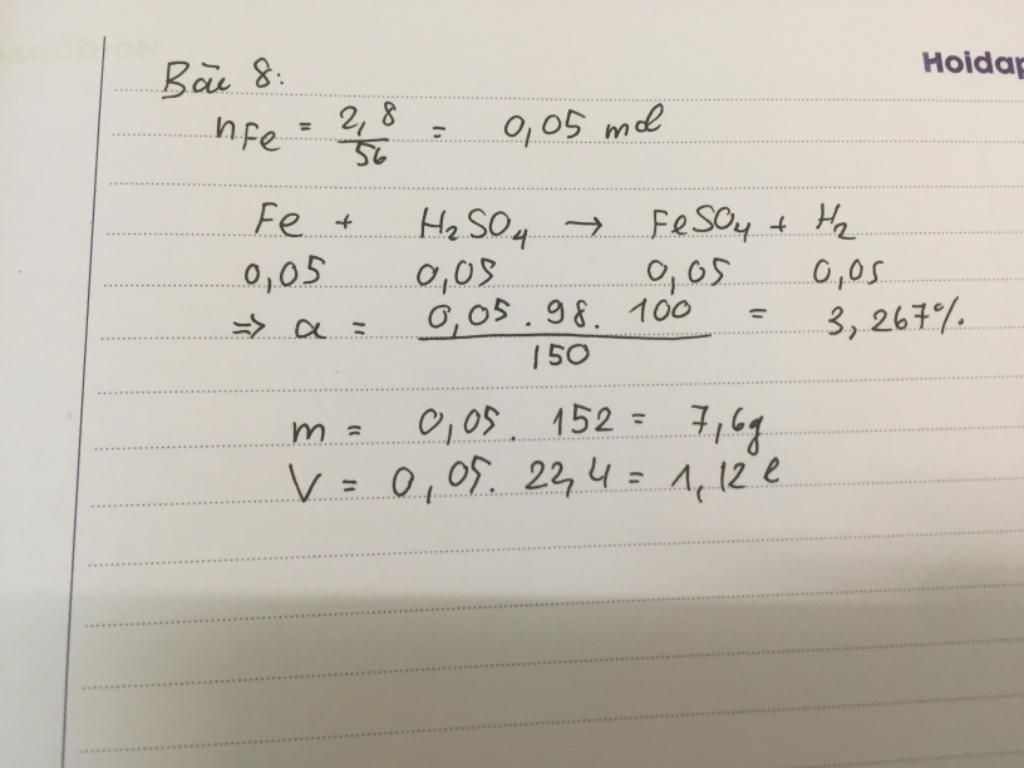 Hoidap
Bài 8:
nFe = 2,8/56 = 0,05 mol
Fe + H2SO4 → FeSO4 + H2
0,05 0,05 0,05 0,05
=> a = 0,05 . 98 . 100/150 = 3,267%.
m = 0,05 . 152 = 7,6g
V = 0,05. 22,4 = 1,12 l